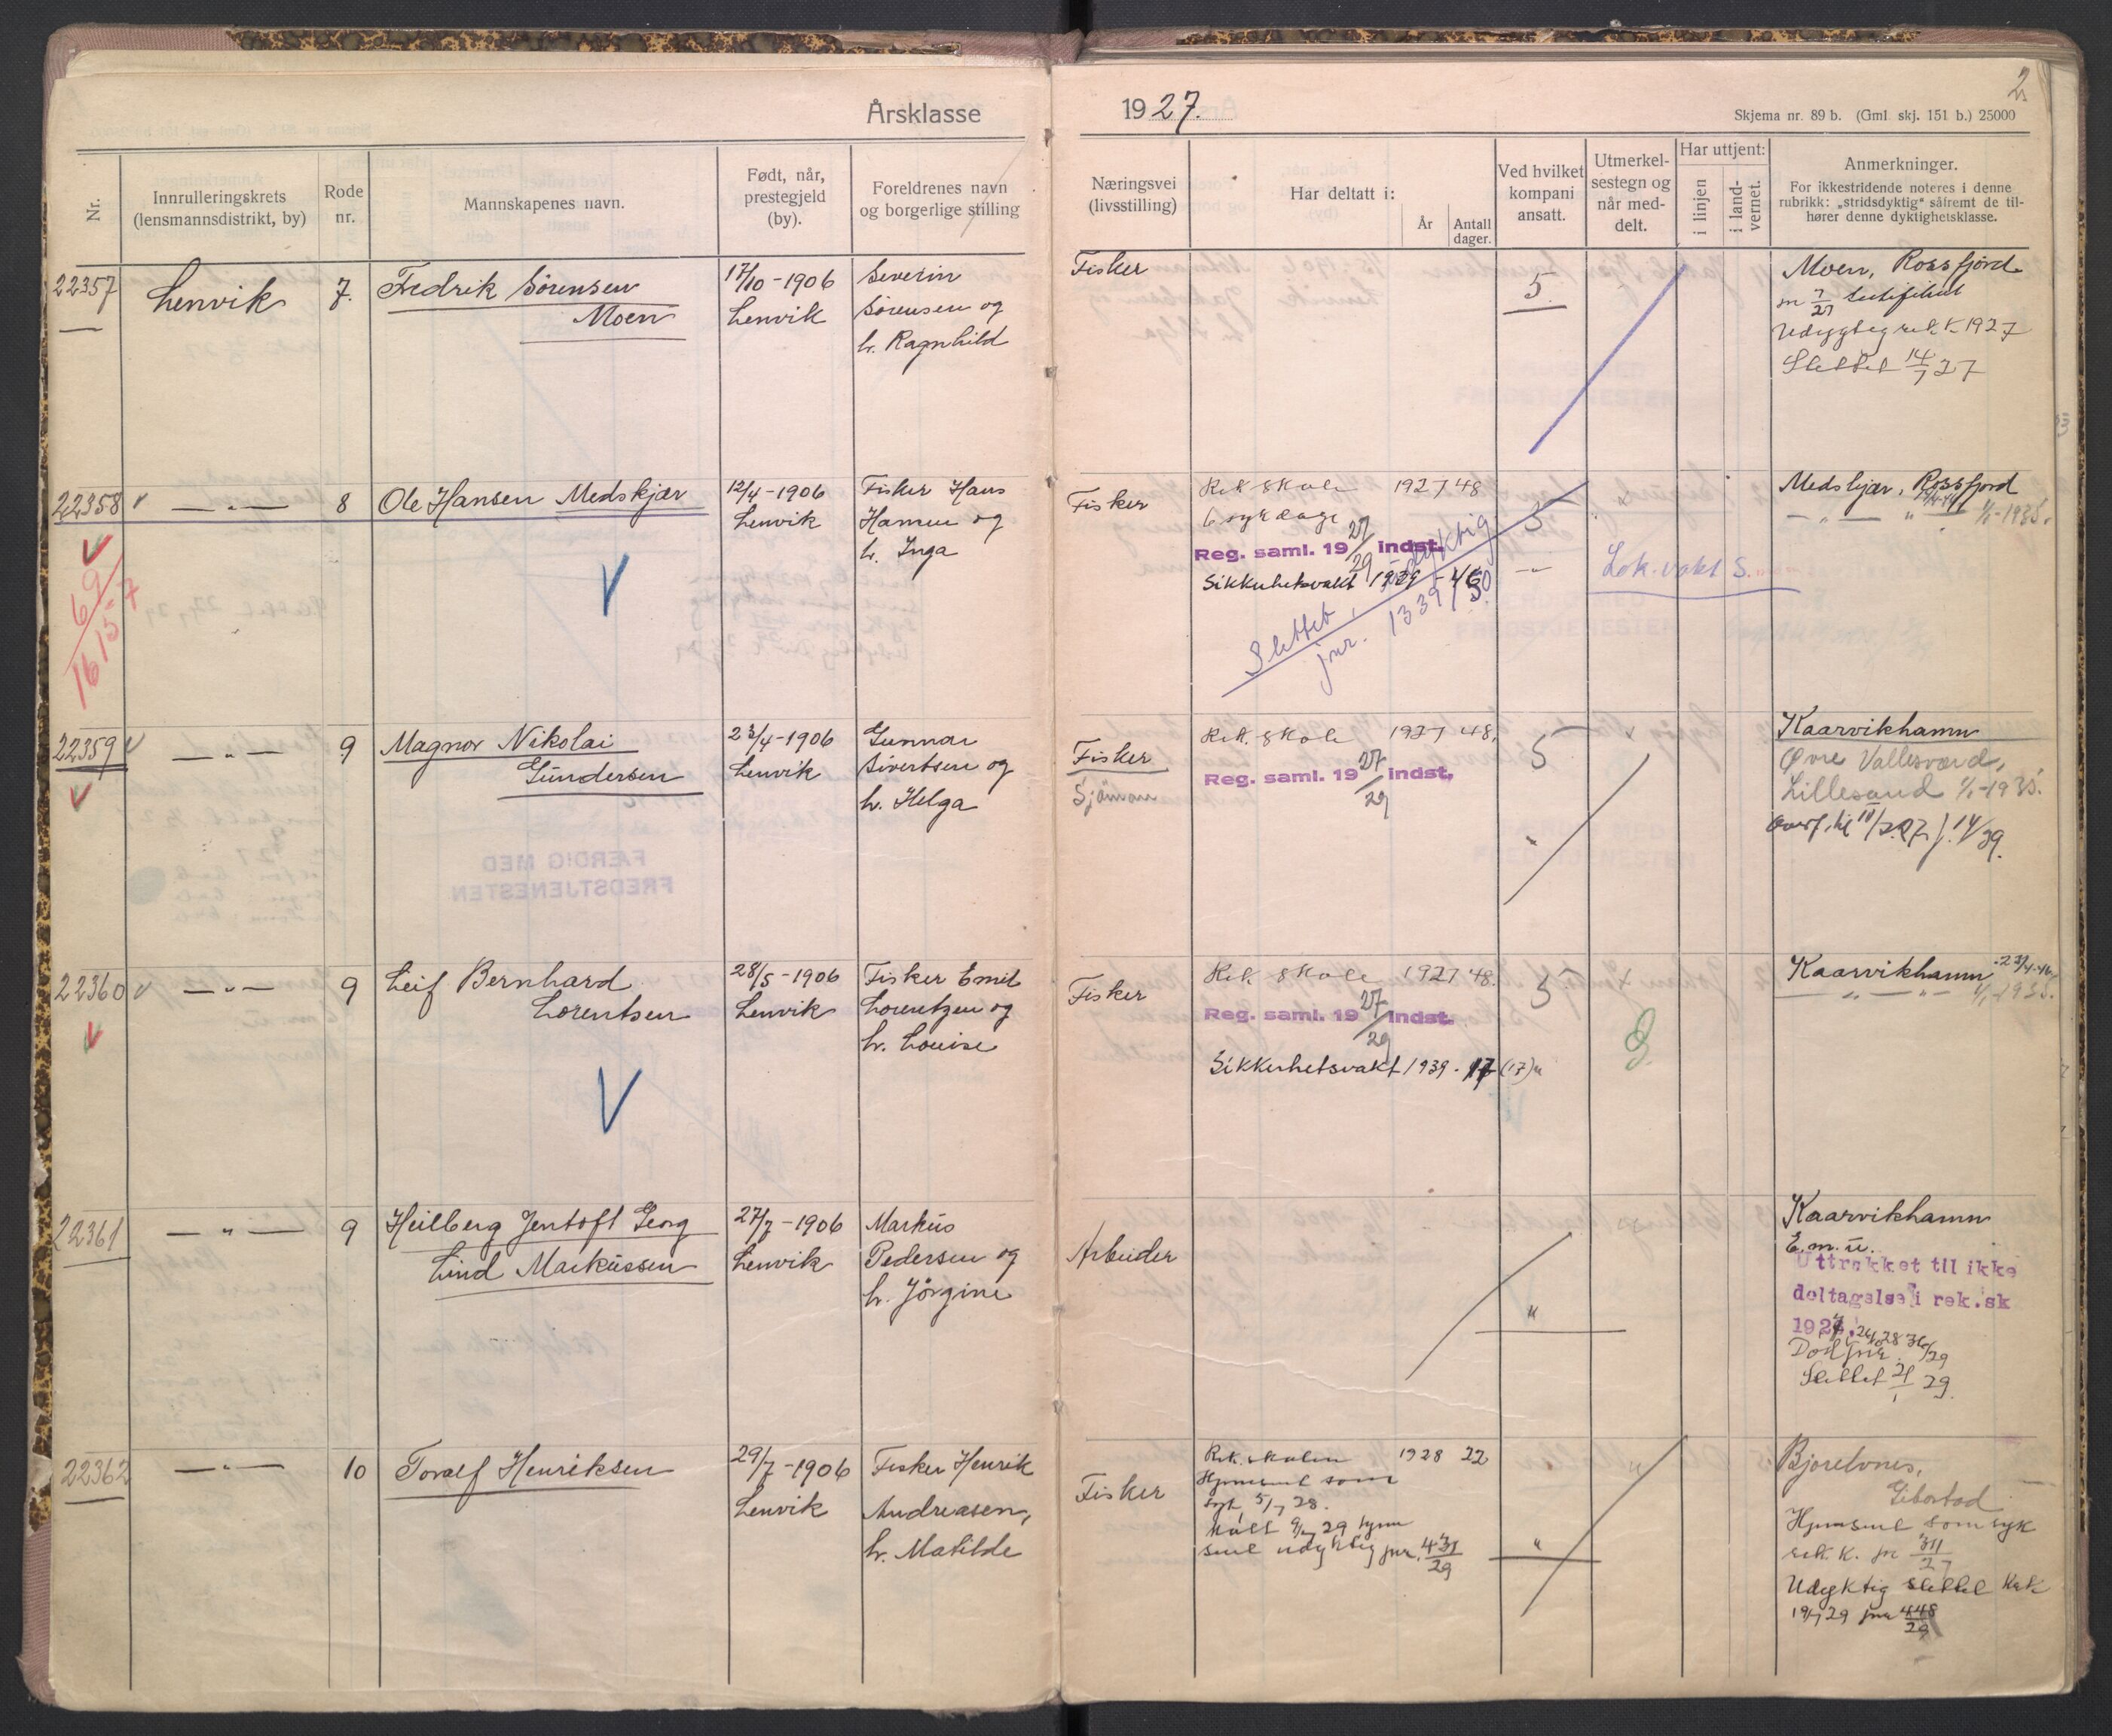 2
Årsklasse 1927.
Skjema nr. 89 b. (Gml. skj. 151 b.) 25000
Nr.
Innrulleringskrets
(lensmannsdistrikt, by)
Rode
nr.
Mannskapenes navn.
Født, når,
prestegjeld
(by).
Foreldrenes navn
og borgerlige stilling
Næringsvei
(livsstilling)
Har deltatt i:
År
Antall
dager.
Ved hvilket
kompani
ansatt.
Utmerkel-
sestegn og
når med-
delt.
Har uttjent:
i linjen
i land-
vernet.
Anmerkninger.
For ikkestridende noteres i denne
rubrikk: „stridsdyktig“ såfremt de til-
hører denne dyktighetsklasse.
22357
Lenvik
7.
Fredrik Sørensen
Moen
17/10-1906
Lenvik
Severin
Sørensen og
h. Ragnhild
Fisker
5.
Moen, Rossfjord
Udygtig rek. k. 1927
Slettet 14/7 27
22358
— „ —
8
Ole Hansen Medskjær
12/4-1906
Lenvik
Fisker Hans
Hansen og
h. Inga
69
Fisker
Rek. skole 1927 48
6 sykedage
Reg. saml. 1927/29 indst.
Sikkerhetsvakt 1939 - 46
Slettet, udyktig
jnr. 1339/50
5
— „ —
x
Lok. vakt S.
Medskjær, Rossfjord
— „ — „ — 1/1-1935.
22359
— „ —
9
Magnor Nikolai
Gundersen
23/4-1906
Lenvik
Gunnar
Sivertsen og
h. Helga
Fisker
Sjömann
Rek. skole 1927 48.
Reg. saml. 1927/29 indst.
5
„
x
Kaarvikhamn
Øvre Vallesværd,
Lillesand 1/1-1935.
22360
— „ —
9
Leif Bernhard
Lorentsen
28/5-1906
Lenvik
Fisker Emil
Lorentzen og
h. Louise
Fisker
Rek. skole 1927 48.
Reg. saml. 1927/29 indst.
Sikkerhetsvakt 1939 - 17 (17) „
5
x
Kaarvikhamn 23/4-46
— „ — „ — 1/1-1935.
22361
— „ —
9
Heilberg Jentoft Georg
Lind Markussen
27/7-1906
Lenvik
Markus
Pedersen og
h. Jørgine
Arbeider
„
Kaarvikhamn
E.m.u.
Uttrukket til ikke
deltagelse i rek.sk
1927.
Slettet 21/1 29.
22362
— „ —
10
Toralf Henriksen
29/7-1906
Lenvik
Fisker Henrik
Andreasen,
h. Matilde
Fisker
Rek. skolen 1928 22
Hjemsent som
syk 5/7 28.
29 hjem
sent udyktig jnr. 431/29
„
Bjorelvnes,
Gibostad
Hjemsent som syk
rek. k. jnr 311/27
Udyktig slettet rek
19/7 29 jnr 448/29